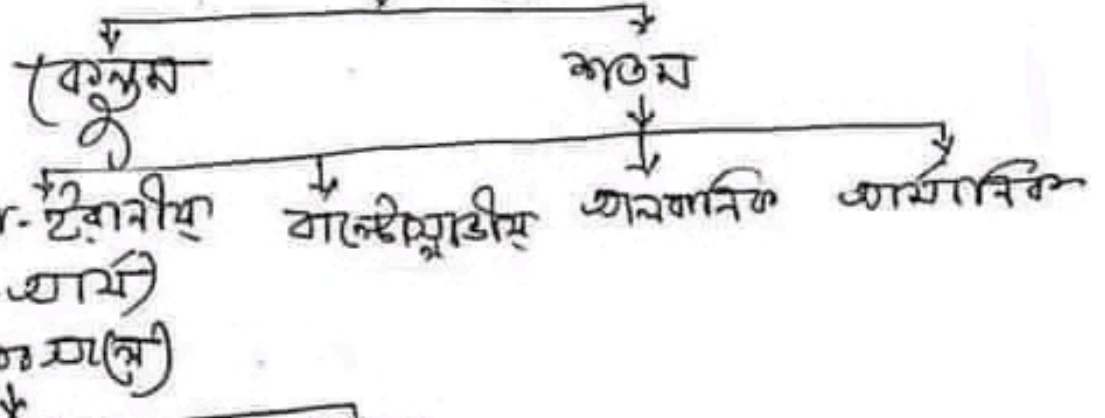 কেন্তুম শতম
ইরানীয় বাল্টোস্লাভীয় আলবানিক আর্মানিক
আর্য)